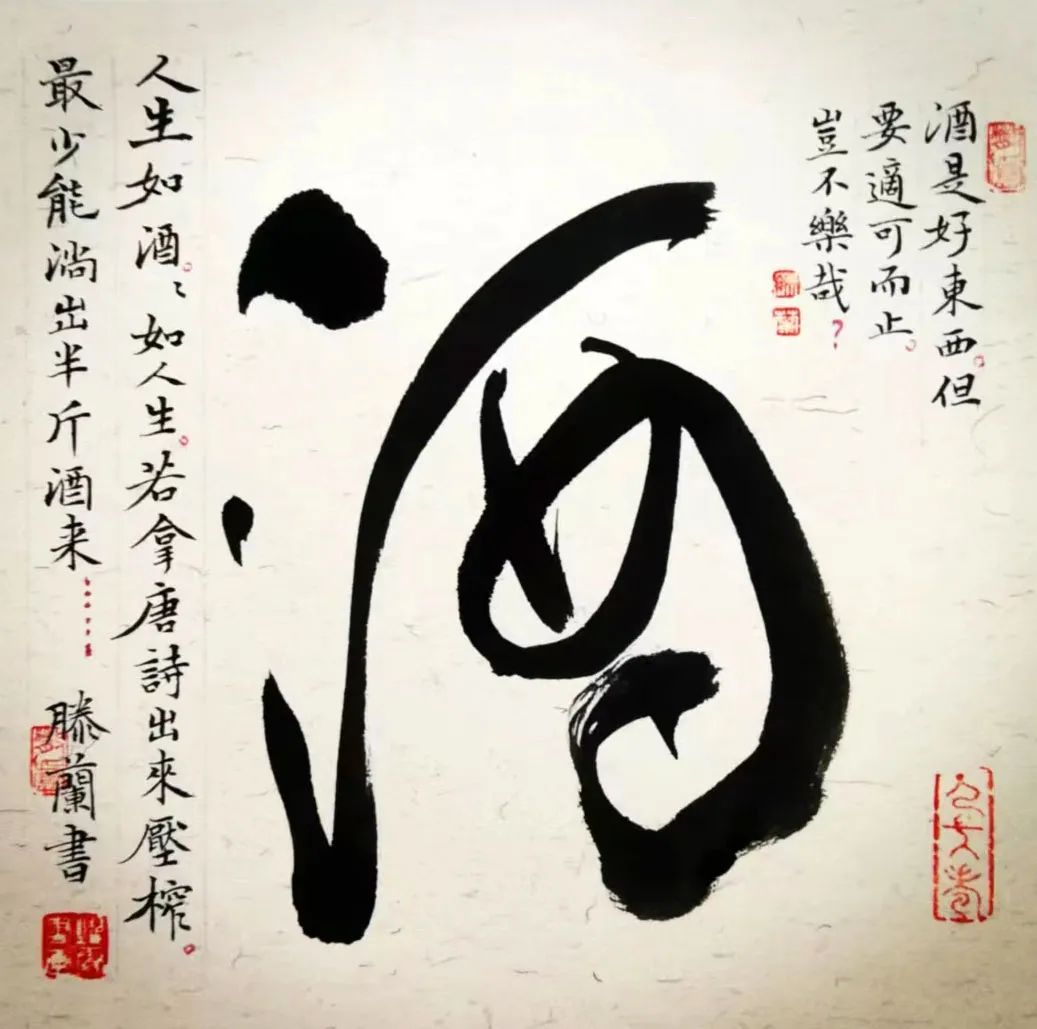 酒是好東西。但
要適可而止。
豈不樂哉？
酒
人生如酒。、如人生。若拿唐詩出來壓榨。
最少能淌出半斤酒来……
滕蘭書